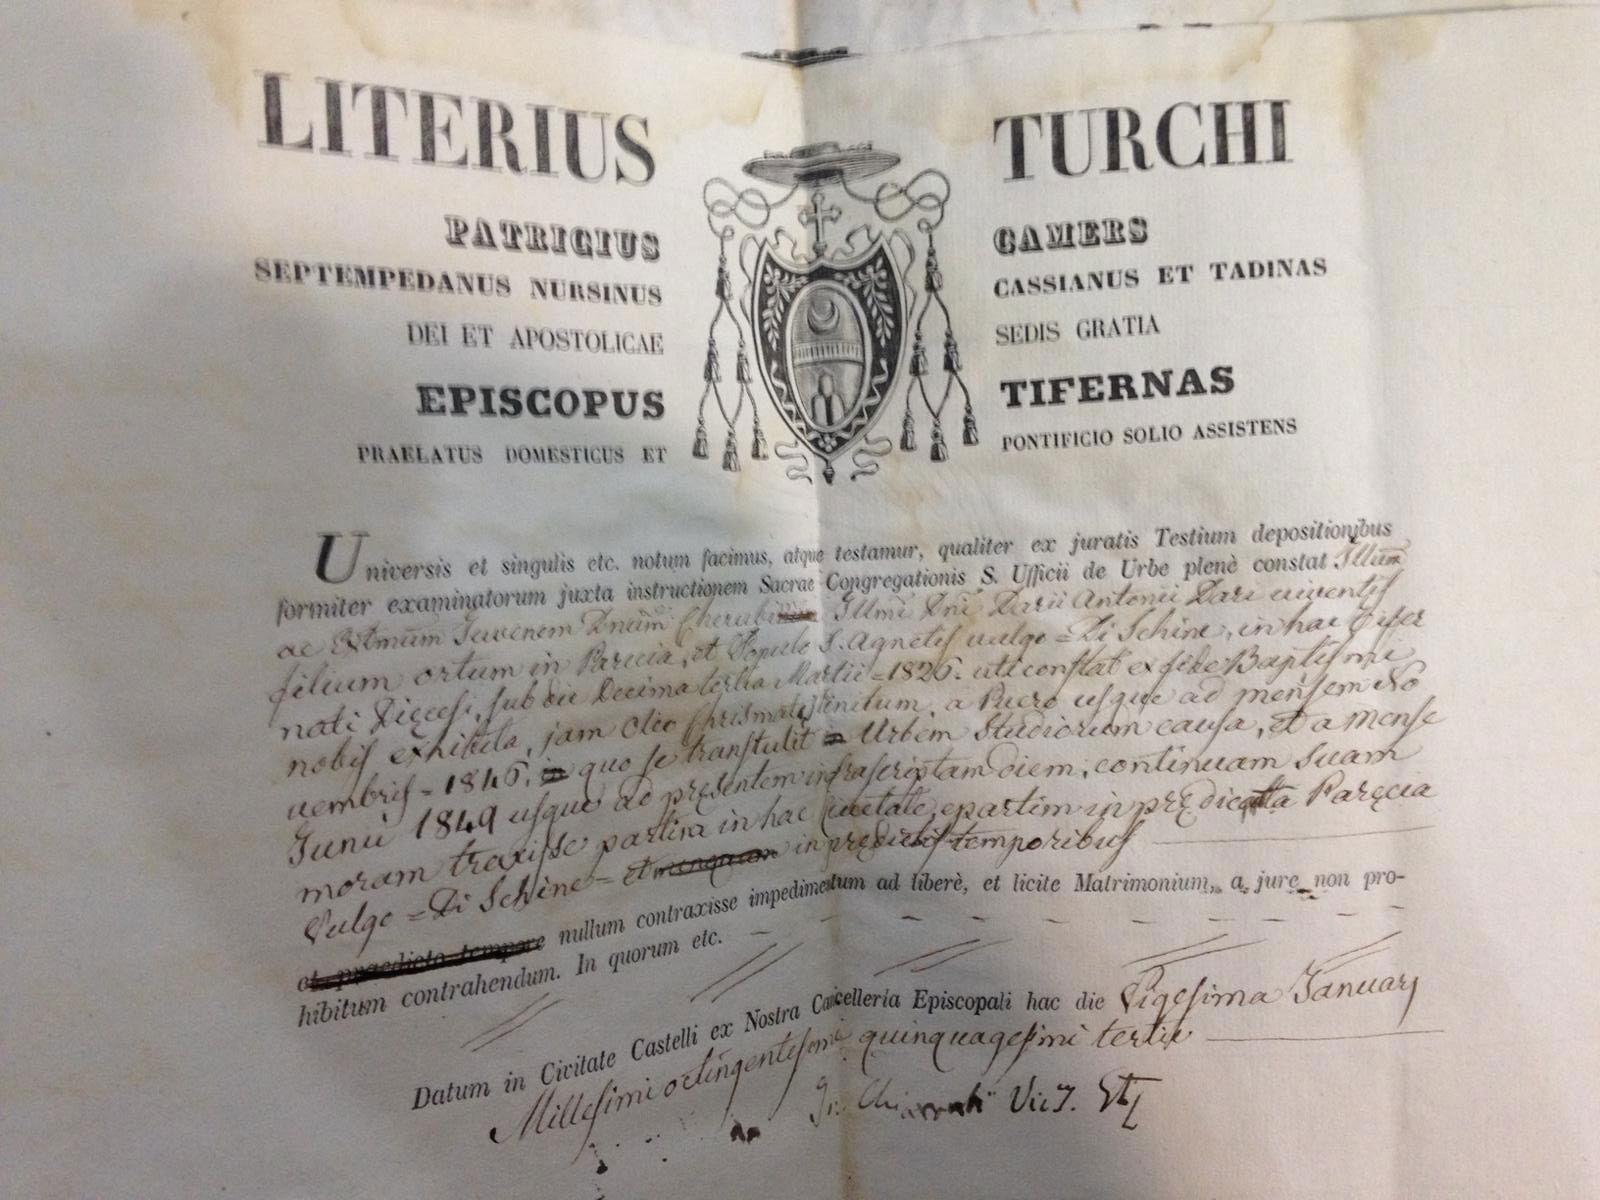 LITERIUS TURCHI
PATRICIUS CAMERS
SEPTEMPEDANUS NURSINUS CASSIANUS ET TADINAS
DEI ET APOSTOLICAE SEDIS GRATIA
EPISCOPUS TIFERNAS
PRAELATUS DOMESTICUS ET PONTIFICIO SOLIO ASSISTENS
Universis et singulis etc. notum facimus, atque testamur, qualiter ex juratis Testium depositionibus
formiter examinatorum juxta instructionem Sacrae Congregationis S. Ufficii de Urbe plenè constat Illum
ac Juvenem Dnum Illmi Dni Darii Antonii Dari viventis
filium ortum in Parecia, et Populo S. Agnetis vulgo = Di Schine, in hac Tifer
nati Diȩcesi, sub die Decima tertia Martii = 1826. uti constat ex fide Baptismi
nobis exhibita, jam Oleo Chrismatis linitum, a Puero usque ad mensem No
vembris = 1846. in quo se transtulit in Urbem Studiorum causa, et a mense
Junii 1849 usque ad prȩsentem infrascriptam diem, continuam suam
moram traxisse partim in hac Civitate, epartim in prȩdicatta Parȩcia
Vulgo = Di Schine = in prȩdictis temporibus
et praedicto tempore nullum contraxisse impedimentum ad liberè, et licite Matrimonium, a jure non pro-
hibitum contrahendum. In quorum etc.
Datum in Civitate Castelli ex Nostra Cancelleria Episcopali hac die Vigesima Januarj
Millesimi octingentesimi quinquagesimi tertii